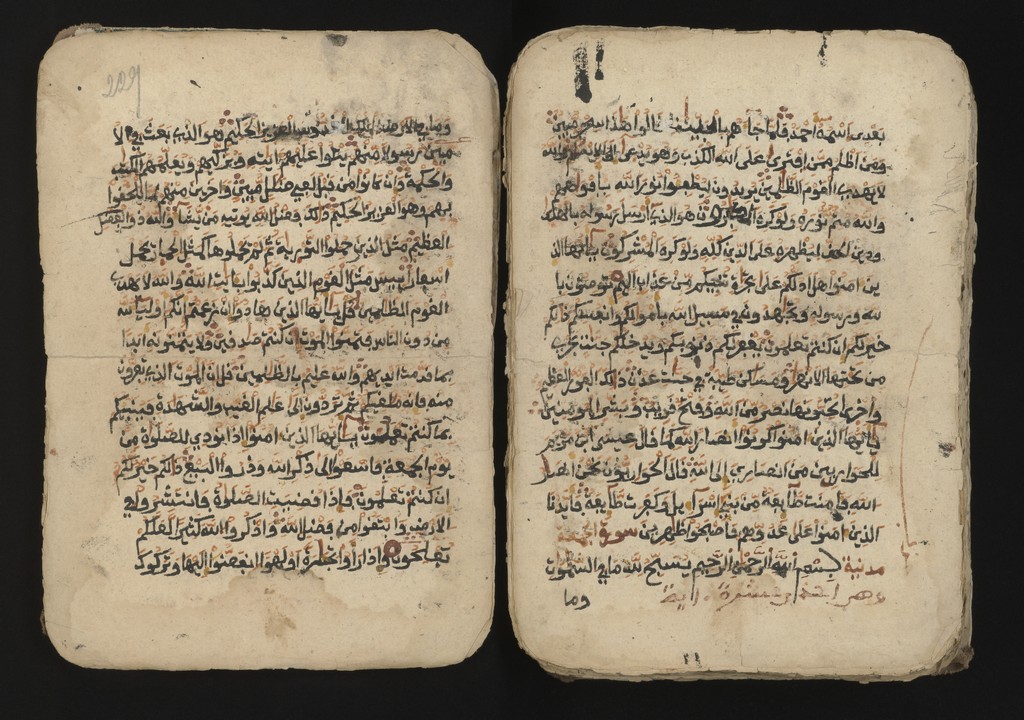 بعدي اسمه احمد فلما جاءهم بالبينت قالوا هذا سحر مبين
ومن اظلم ممن افترى على الله الكذب وهو يدعى الى الاسلام والله
لا يهدي القوم الظلمين يريدون ليطفوا نور الله بافواههم
والله متم نوره ولو كره الكافرون هو الذي ارسل رسوله بالهدى
ودين الحق ليظهره على الدين كله ولو كره المشركون يايها الذ
ين امنوا هل ادلكم على تجرة تنجيكم من عذاب اليم تومنون با
لله ورسوله وتجهدون في سبيل الله باموالكم وانفسكم ذالكم
خير لكم ان كنتم تعلمون يغفر لكم ذنوبكم ويدخلكم جنت تجري
من تحتها الانهر ومسكن طيبة في جنت عدن ذالك الفوز العظيم
واخرى تحبونها نصر من الله وفتح قريب وبشر المومنين
يايها الذين امنوا كونوا انصار الله كما قال عيسى ابن مريم
للحوارين من انصاري الى الله قال الحواريون نحن انصار
الله فامنت طايفة من بني اسرايل وكفرت طايفة فايدنا
الذين امنوا على عدوهم فاصبحوا ظهرين سورة الجمعة
مدنية بسم الله الرحمن الرحيم يسبح لله ما في السموت
عشرة اية
وما
229
وما في الارض الملك القدوس العزيز الحكيم هو الذي بعث في الا
ميين رسولا منهم يتلوا عليهم ايته ويزكيهم ويعلمهم الكتب
والحكمة وان كانوا من قبل لفي ضلل مبين واخرين منهم لما يلحقوا
بهم وهو العزيز الحكيم ذالك فضل الله يوتيه من يشا والله ذو الفضل
العظيم مثل الذين حملوا التورية ثم لم يحملوها كمثل الحمار يحمل
اسفارا بيس مثل القوم الذين كذبوا بايت الله والله لا يهدي
القوم الظلمين قل يايها الذين هادوا ان زعمتم انكم اوليا لله
من دون الناس فتمنوا الموت ان كنتم صدقين ولا يتمنونه ابدا
بما قدمت ايديهم والله عليم بالظلمين قل ان الموت الذي تفرون
منه فانه ملقيكم ثم تردون الى علم الغيب والشهدة فينبيكم
بما كنتم تعملون يايها الذين امنوا اذا نودي للصلوة من
يوم الجمعة فاسعوا الى ذكر الله وذروا البيع ذلكم خير لكم
ان كنتم تعلمون فاذا قضيت الصلوة فانتشروا في
الارض وابتغوا من فضل الله واذكروا الله كثيرا لعلكم
تفلحون واذا راوا تجرة او لهوا انفضوا اليها وتركوك